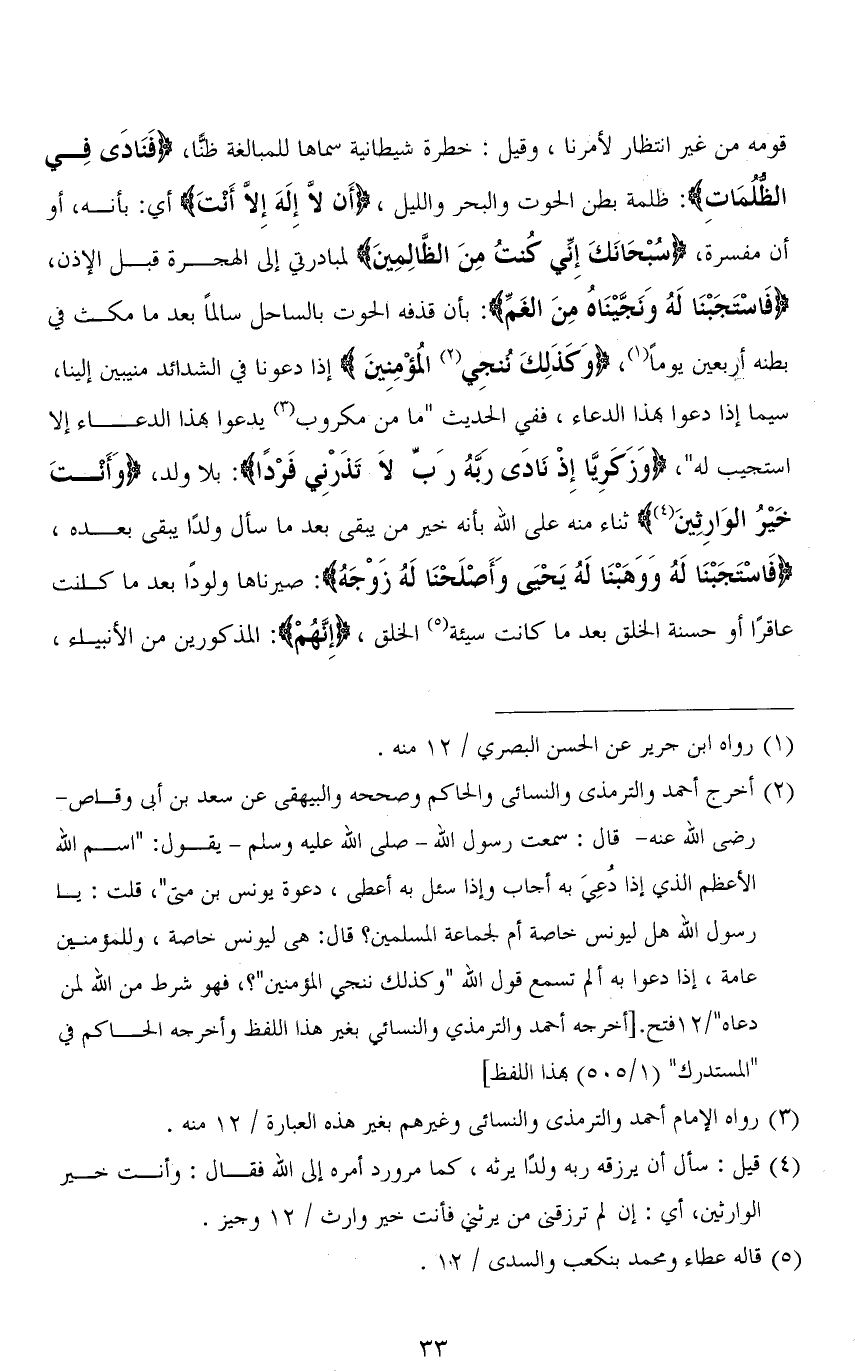 قومه من غير انتظار لأمرنا ، وقيل : خطرة شيطانية سماها للمبالغة ظنًّا، ﴿فَنَادَى فِي
الظُّلُمَاتِ﴾: ظلمة بطن الحوت والبحر والليل ، ﴿أَن لاَّ إِلَهَ إِلاَّ أَنْتَ﴾ أي: بأنه، أو
أن مفسرة، ﴿سُبْحَانَكَ إِنِّي كُنتُ مِنَ الظَّالِمِينَ﴾ لمبادرتي إلى الهجرة قبل الإذن،
﴿فَاسْتَجَبْنَا لَهُ وَنَجَّيْنَاهُ مِنَ الغَمِّ﴾: بأن قذفه الحوت بالساحل سالماً بعد ما مكث في
بطنه أربعين يوماً(١)، ﴿وَكَذَلِكَ نُنجِي(٢) المُؤْمِنِينَ ﴾ إذا دعونا في الشدائد منيبين إلينا،
سيما إذا دعوا بهذا الدعاء ، ففي الحديث "ما من مكروب(٣) يدعوا بهذا الدعاء إلا
استجيب له"، ﴿وَزَكَرِيَّا إِذْ نَادَى رَبَّهُ رَبِّ لاَ تَذَرْنِي فَرْدًا﴾: بلا ولد، ﴿وَأَنْتَ
خَيْرُ الوَارِثِينَ(٤)﴾ ثناء منه على الله بأنه خير من يبقى بعد ما سأل ولدًا يبقى بعده ،
﴿فَاسْتَجَبْنَا لَهُ وَوَهَبْنَا لَهُ يَحْيَى وَأَصْلَحْنَا لَهُ زَوْجَهُ﴾: صيرناها ولودًا بعد ما كلنت
عاقرًا أو حسنة الخلق بعد ما كانت سيئة(٥) الخلق ، ﴿إِنَّهُمْ﴾: المذكورين من الأنبياء ،
(١) رواه ابن جرير عن الحسن البصري / ١٢ منه .
(٢) أخرج أحمد والترمذى والنسائى والحاكم وصححه والبيهقى عن سعد بن أبى وقاص-
رضى الله عنه- قال : سمعت رسول الله - صلى الله عليه وسلم - يقول: "اسم الله
الأعظم الذي إذا دُعِيَ به أجاب وإذا سئل به أعطى ، دعوة يونس بن متى"، قلت : يا
رسول الله هل ليونس خاصة أم لجماعة المسلمين؟ قال: هى ليونس خاصة ، وللمؤمنين
عامة ، إذا دعوا به ألم تسمع قول الله "وكذلك ننجي المؤمنين"؟، فهو شرط من الله لمن
دعاه"/١٢فتح.[أخرجه أحمد والترمذي والنسائي بغير هذا اللفظ وأخرجه الحاكم في
"المستدرك" (٥٠٥/١) بهذا اللفظ]
(٣) رواه الإمام أحمد والترمذى والنسائى وغيرهم بغير هذه العبارة / ١٢ منه .
(٤) قيل : سأل أن يرزقه ربه ولدًا يرثه ، كما مرورد أمره إلى الله فقال : وأنت خير
الوارثين، أي : إن لم ترزقنى من يرثني فأنت خير وارث / ١٢ وجيز .
(٥) قاله عطاء ومحمد بنكعب والسدى / ١٠٢ .
٣٣